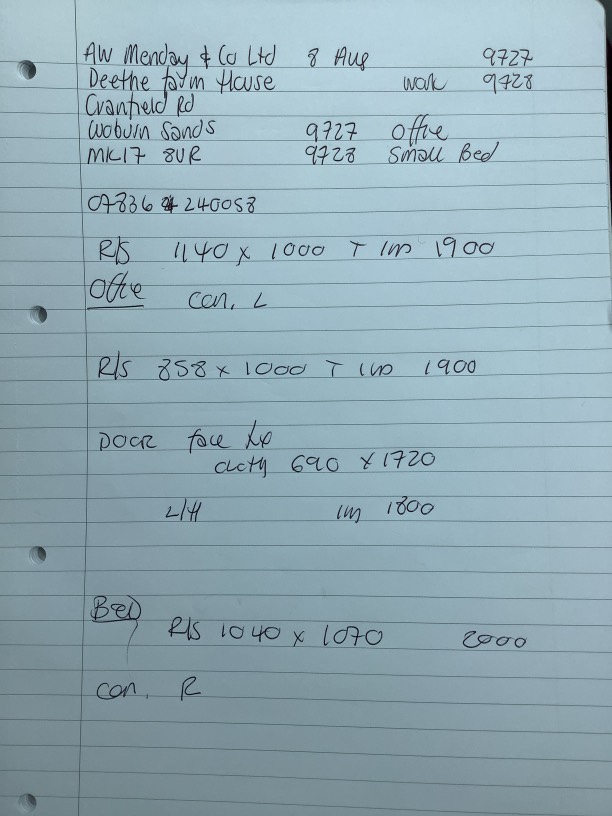 AW Menday & Co Ltd 8 Aug 9727
Deethe farm House work 9728
Cranfield Rd
Woburn Sands 9727 Office
MK17 8UR 9728 Small Bed
07836 240058
R/S 1140 x 1000 T 1900
Office con. L
R/S 858 x 1000 T 1900
DOOR face
690 x 1720
L/H 1800
Bed
R/S 1040 x 1070 2000
con. R